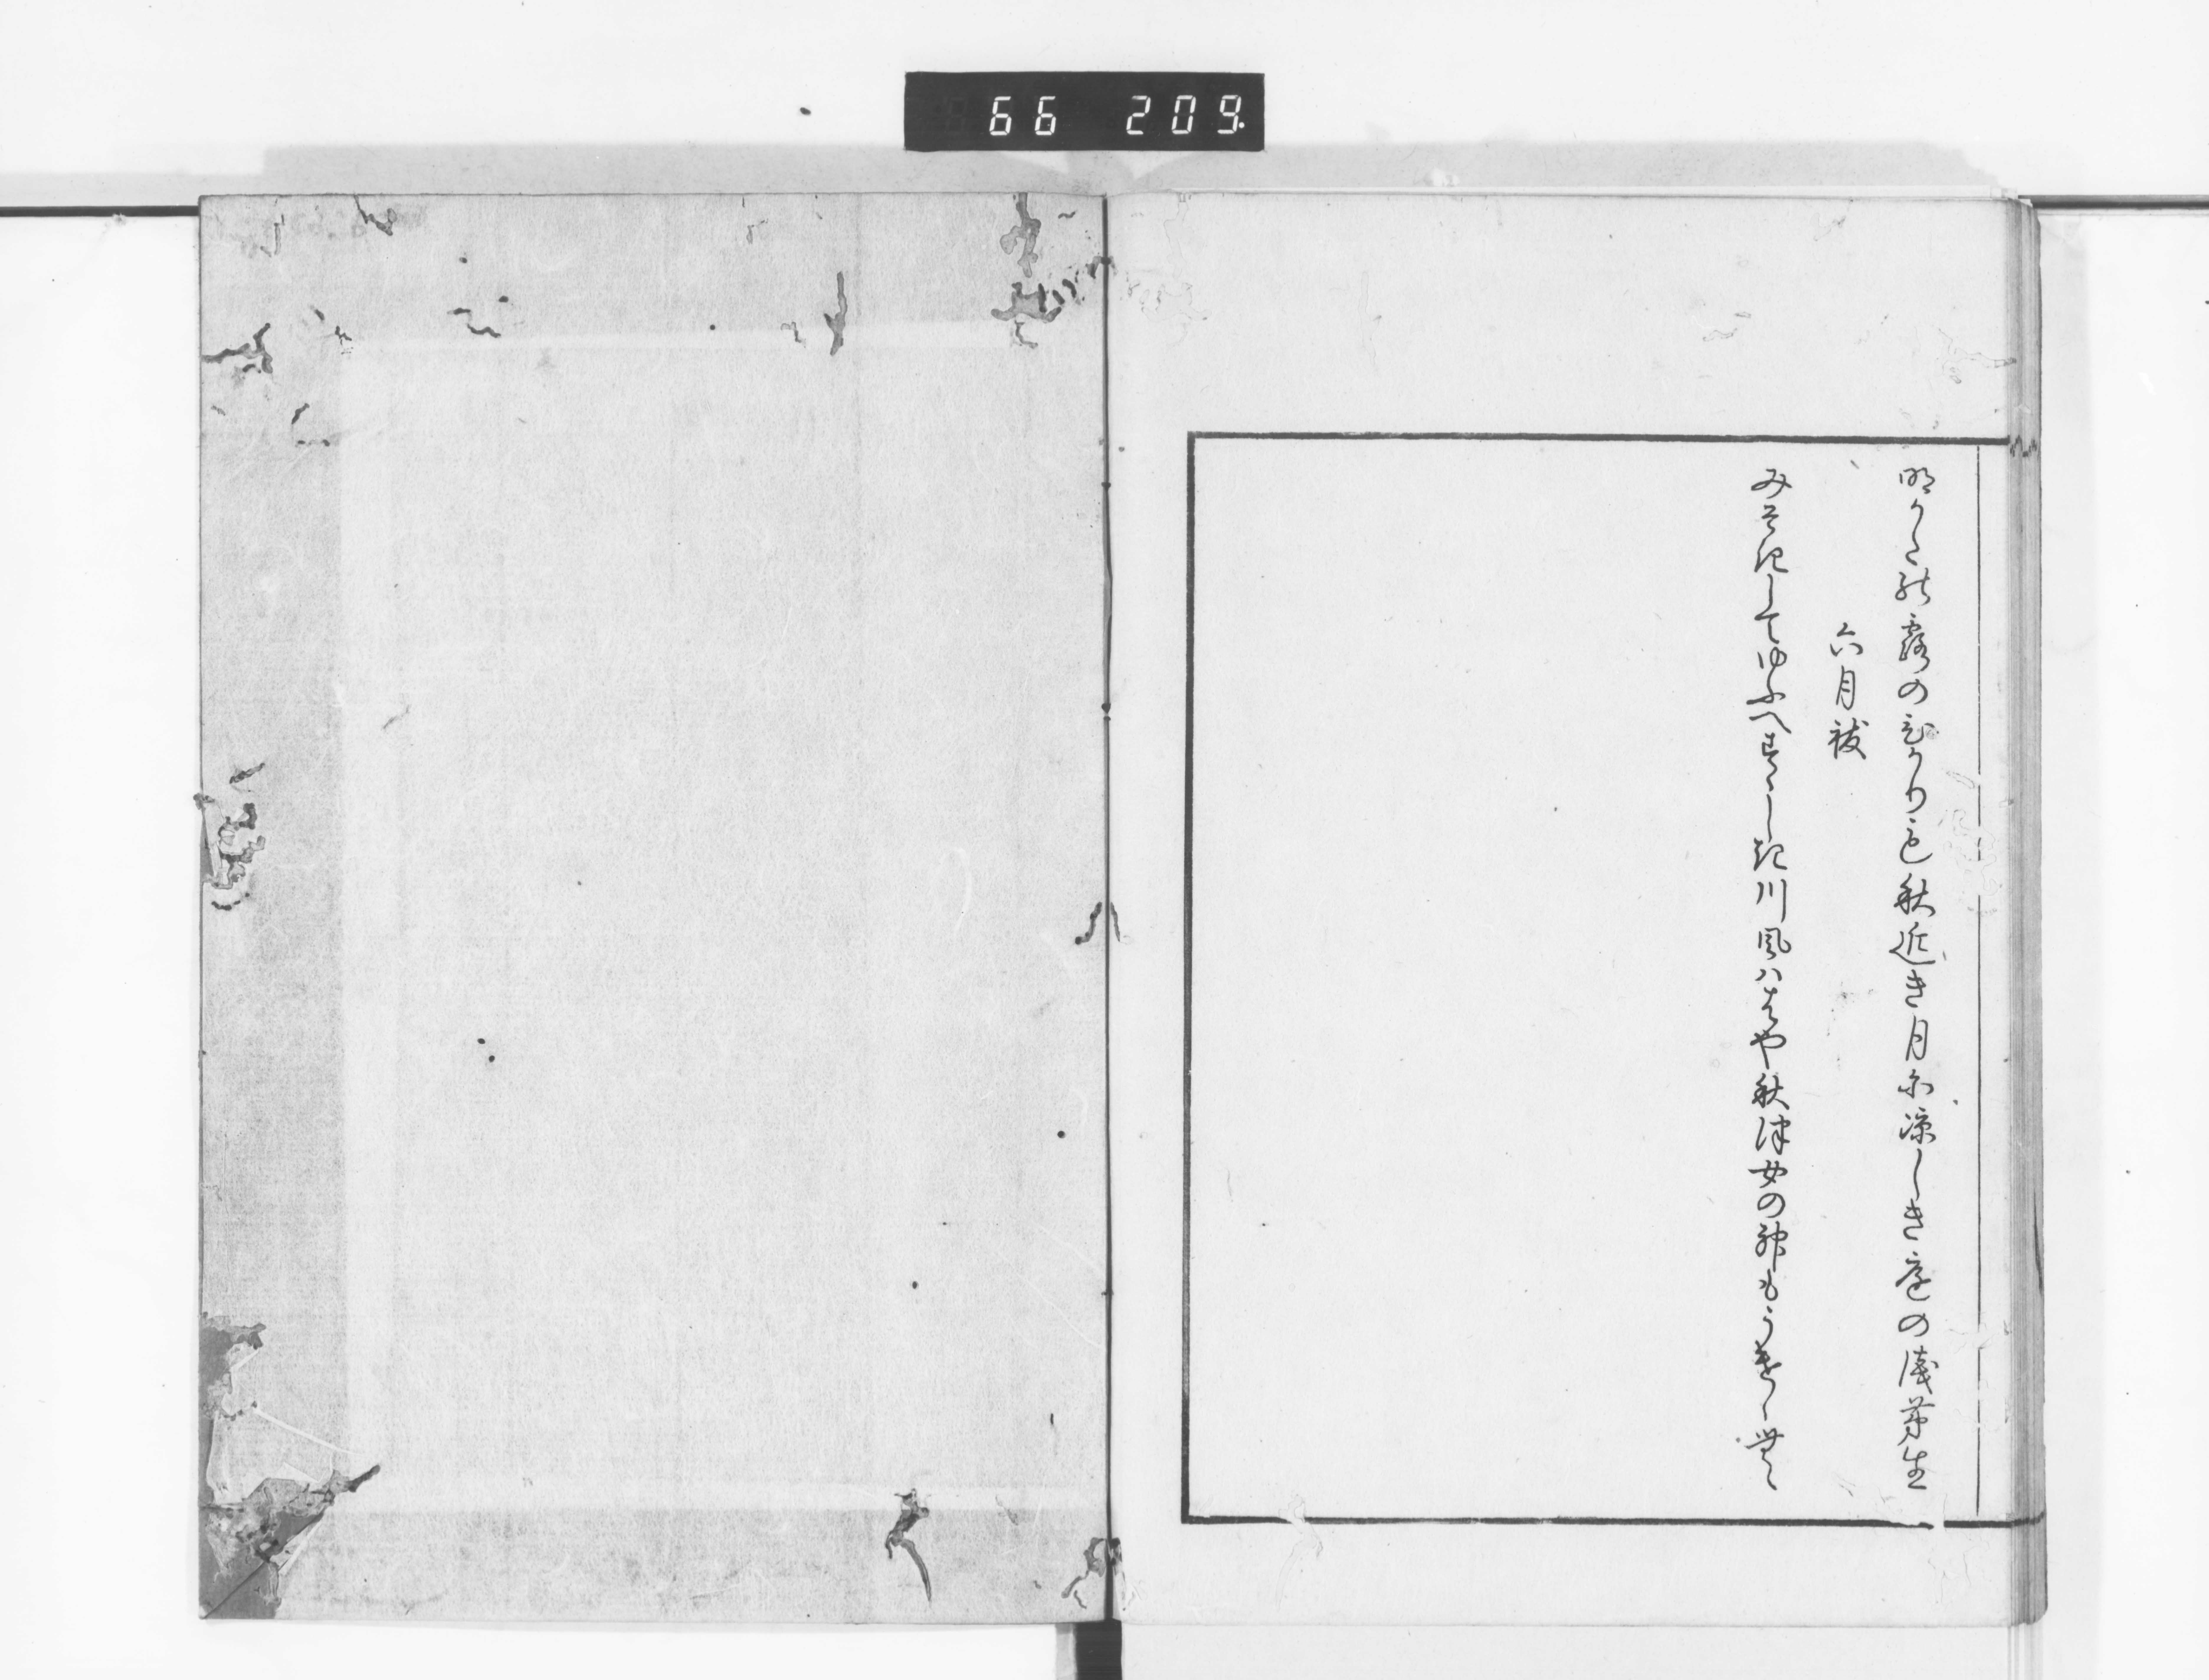 66 209
明かたの露のひかりも秋近き月に涼しき庭の浅茅生
六月祓
みそきしてゆふへすゝしき川風ハはや秋津女の神もうけゝむ